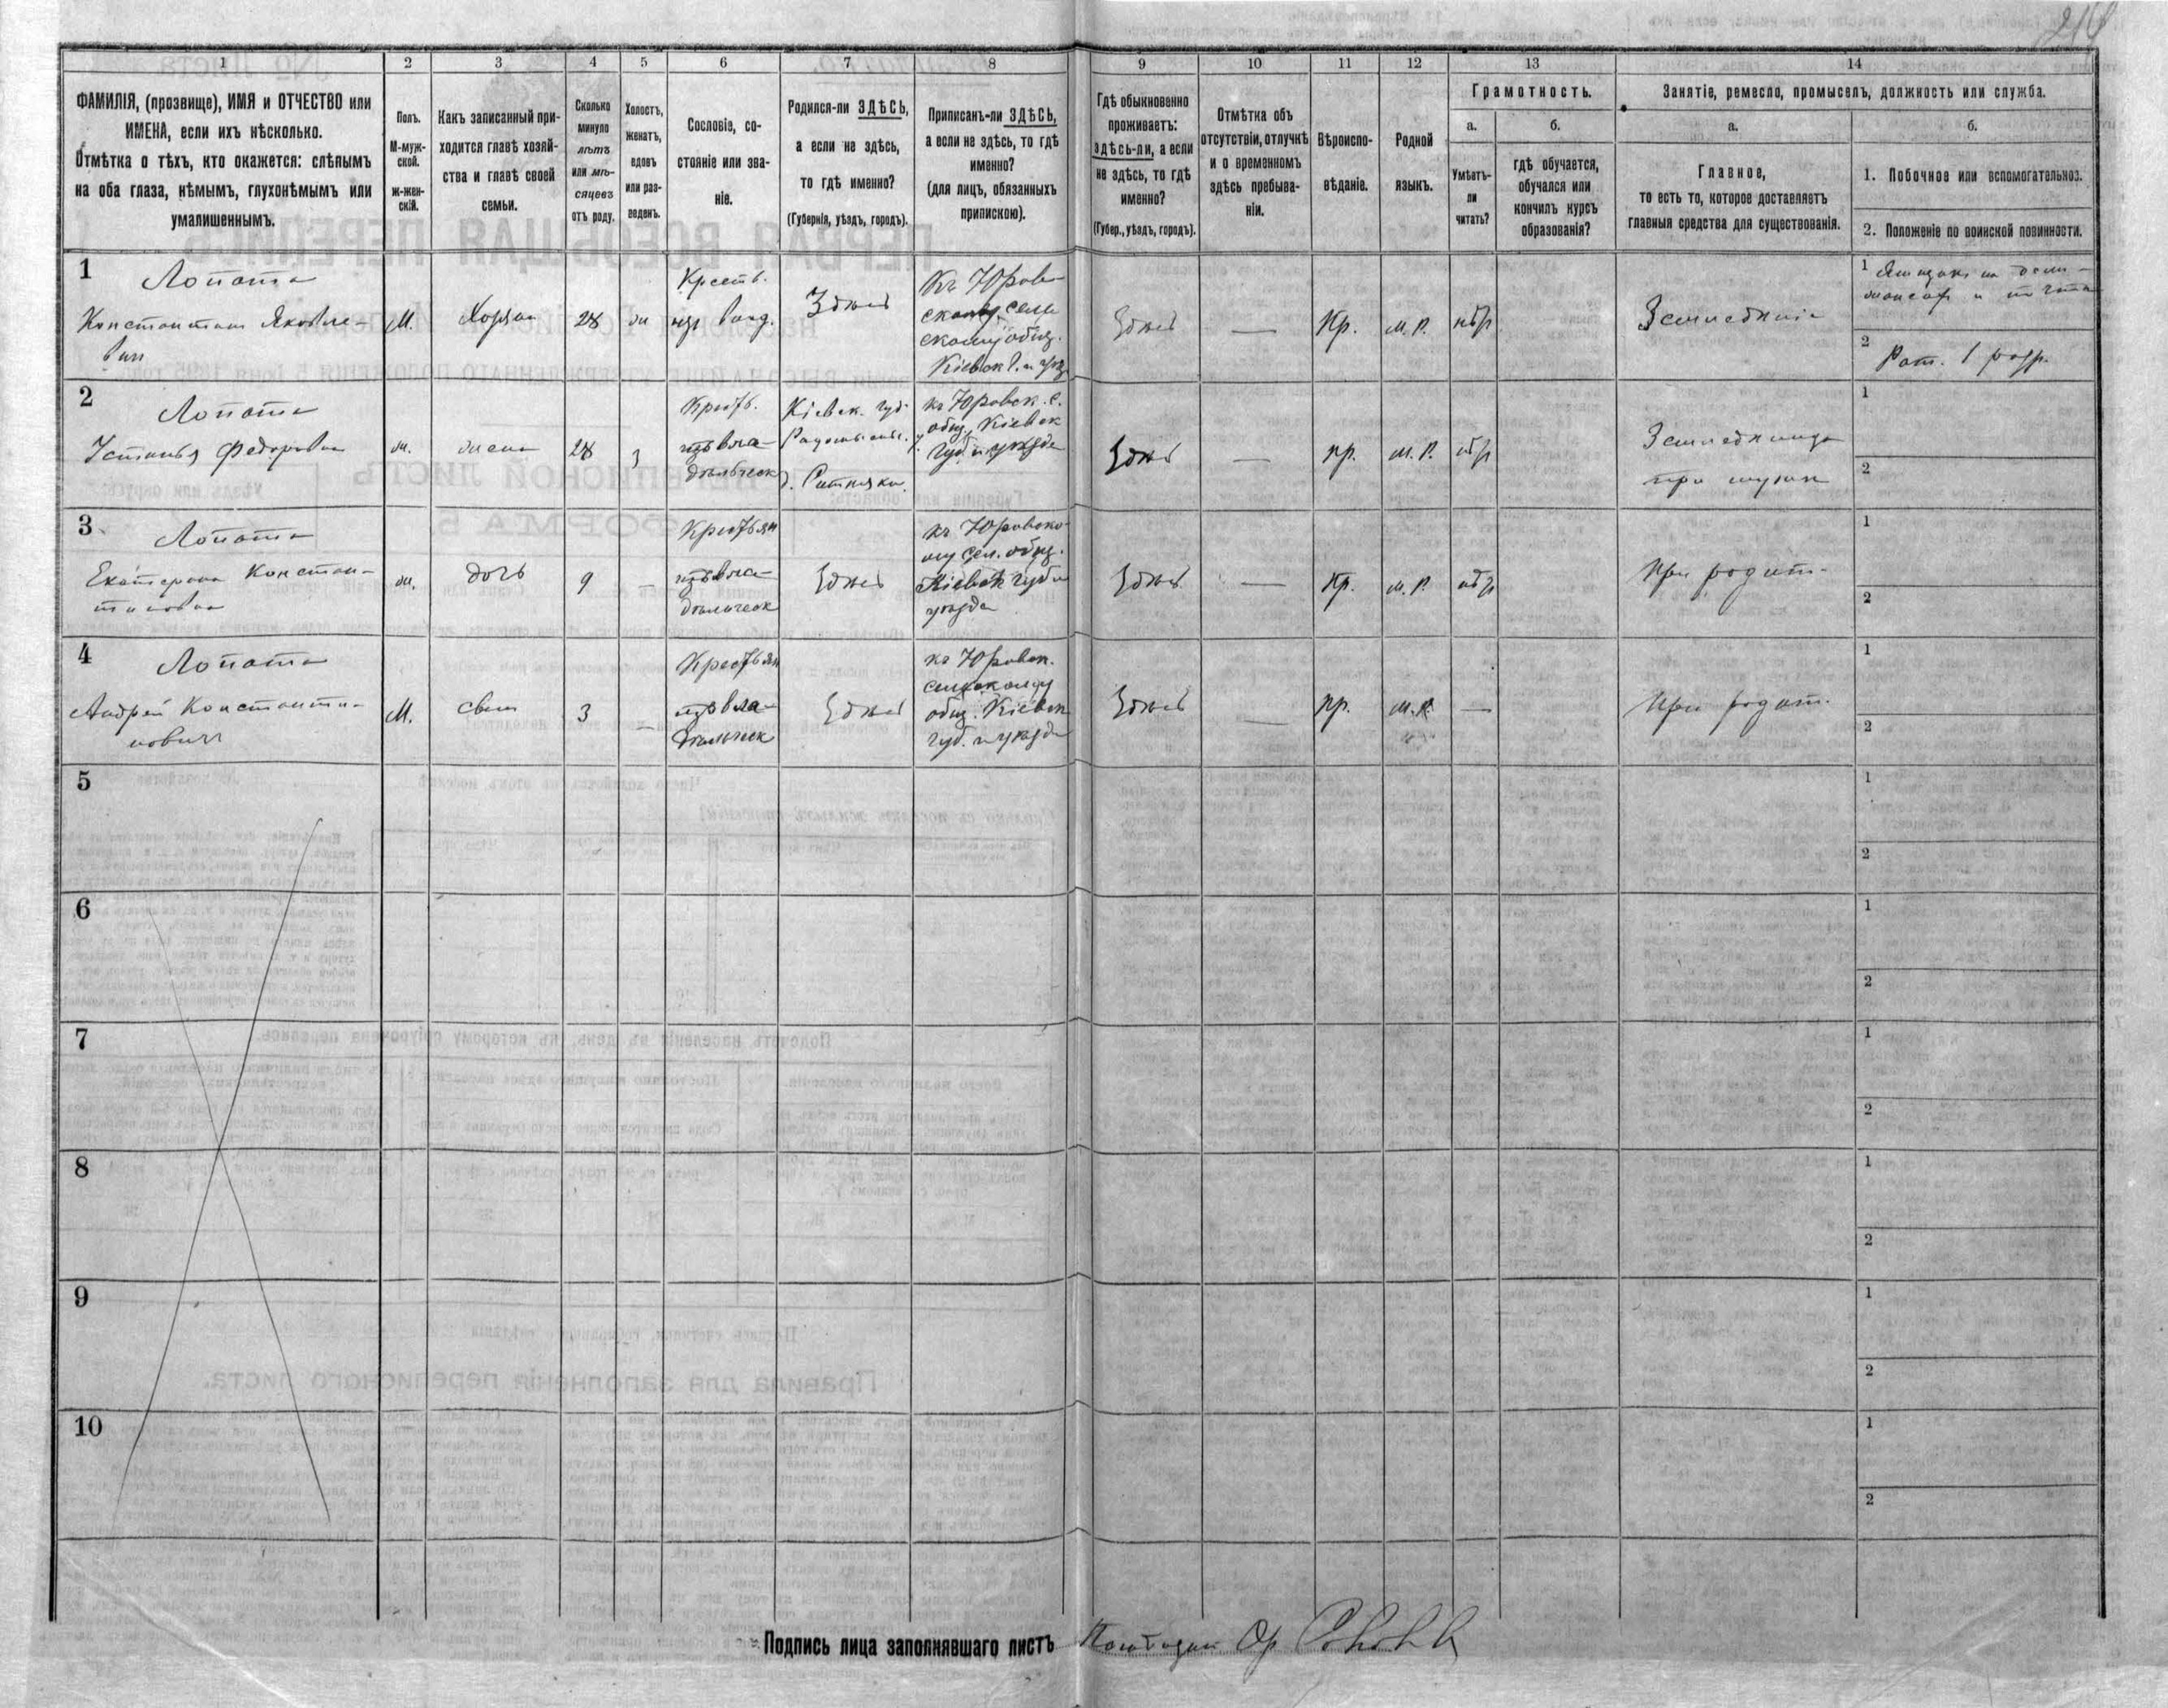 218
1
2
3
4
5
6
7
8
9
10
11
12
13
14
ФАМИЛІЯ, (прозвище), ИМЯ и ОТЧЕСТВО или
ИМЕНА, если ихъ нѣсколько.
Отмѣтка о тѣхъ, кто окажется: слѣпымъ
на оба глаза, нѣмымъ, глухонѣмымъ или
умалишеннымъ.
Полъ.
М-муж-
ской.
ж-жен-
скій.
Какъ записанный при-
ходится главѣ хозяй-
ства и главѣ своей
семьи.
Сколько
минуло
лѣтъ
или мѣ-
сяцевъ
отъ роду.
Холостъ,
женатъ,
вдовъ
или раз-
веденъ.
Сословіе, со-
стояніе или зва-
ніе.
Родился-ли ЗДѢСЬ,
а если не здѣсь,
то гдѣ именно?
(Губернія, уѣздъ, городъ).
Приписанъ-ли ЗДѢСЬ,
а если не здѣсь, то гдѣ
именно?
(для лицъ, обязанныхъ
припискою).
Гдѣ обыкновенно
проживаетъ:
здѣсь-ли, а если
не здѣсь, то гдѣ
именно?
(Губер., уѣздъ, городъ).
Отмѣтка объ
отсутствіи, отлучкѣ
и о временномъ
здѣсь пребыва-
ніи.
Вѣроиспо-
вѣданіе.
Родной
языкъ.
Грамотность.
а.
Умѣетъ-
ли
читать?
б.
гдѣ обучается,
обучался или
кончилъ курсъ
образованія?
Занятіе, ремесло, промыселъ, должность или служба.
а.
Главное,
то есть то, которое доставляетъ
главныя средства для существованія.
б.
1. Побочное или вспомогательное.
2. Положеніе по воинской повинности.
1
Лопата
Константин Яковле-
вич
М.
Хозяин
28
ж
Крест.
Здѣсь
Къ Юров-
скому сель-
скому общ.
Кіевск. г. и уѣзд
Здѣсь
—
Пр.
м. р.
нѣт
Земледѣліе
1
2
Рат. 1 разр.
2
Лопата
Устинья Федоровна
ж.
жена
28
з
Крест.
из вла-
дѣльческ
Кіевск. губ.
Радомысл. у.
къ Юровск. с.
общ. Кіевск
губ. и уѣзда
Здѣсь
—
пр.
м. р.
нѣт
Земледѣлица
при мужѣ
1
2
3
Лопата
Екатерина Констан-
тиновна
ж.
дочь
9
—
Крестьян
из вла-
дѣльческ
Здѣсь
къ Юровско-
му сел. общ.
Кіевск губ и
уѣзда
Здѣсь
—
Пр.
м. р.
нѣт
При родит.
1
2
4
Лопата
Андрей Константи-
нович
М.
сын
3
—
Крестьян
из вла-
дѣльческ
Здѣсь
къ Юровск.
сельскому
общ. Кіевск
губ. и уѣзда
Здѣсь
—
пр.
м. р.
—
При родит.
1
2
5
1
2
6
1
2
7
1
2
8
1
2
9
1
2
10
1
2
Подпись лица заполнявшаго листъ